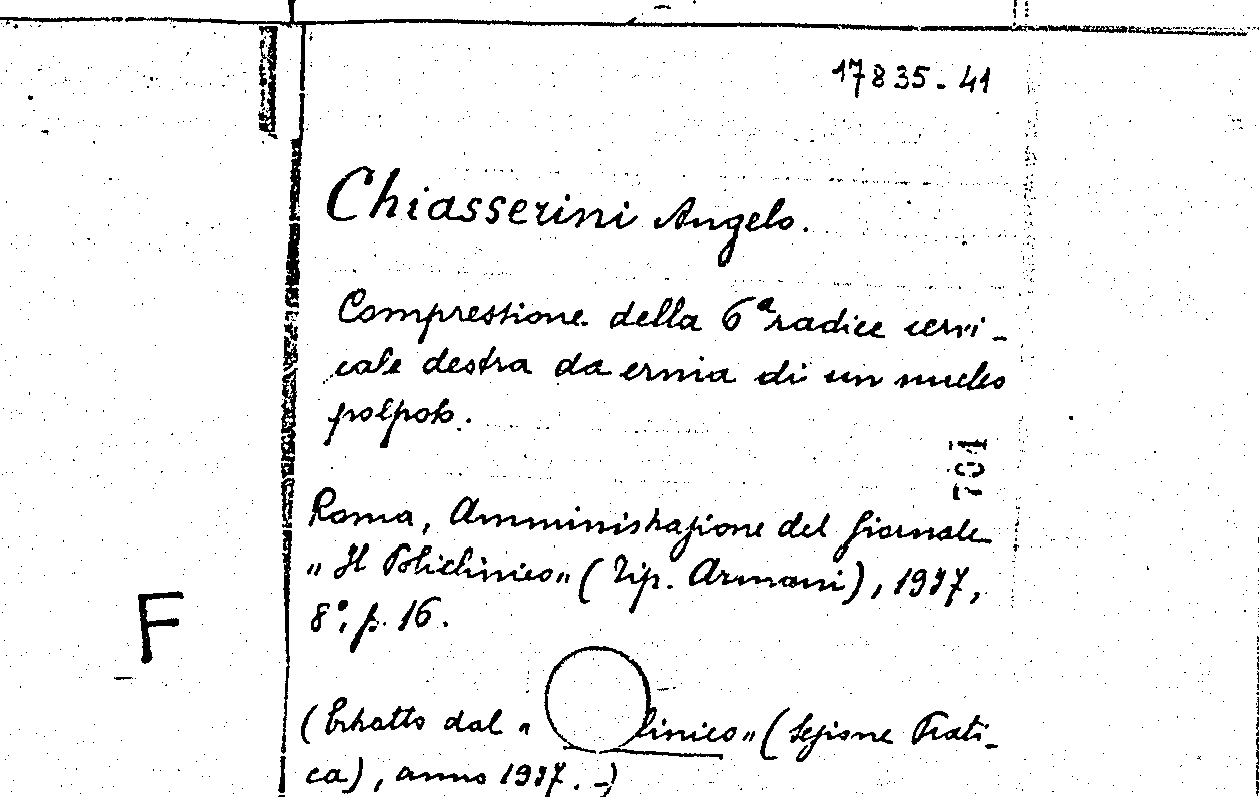 17835-41
Chiasserini Angelo.
Compressione della 6ª radice cervi-
cale destra da ernia di un nucleo
polposo.
701
Roma, Amministrazione del Giornale
"Il Policlinico" (Tip. Armani), 1937,
8°, p. 16.
F
(Estratto dal " linico" (Sezione Prati-
ca), anno 1937. -)